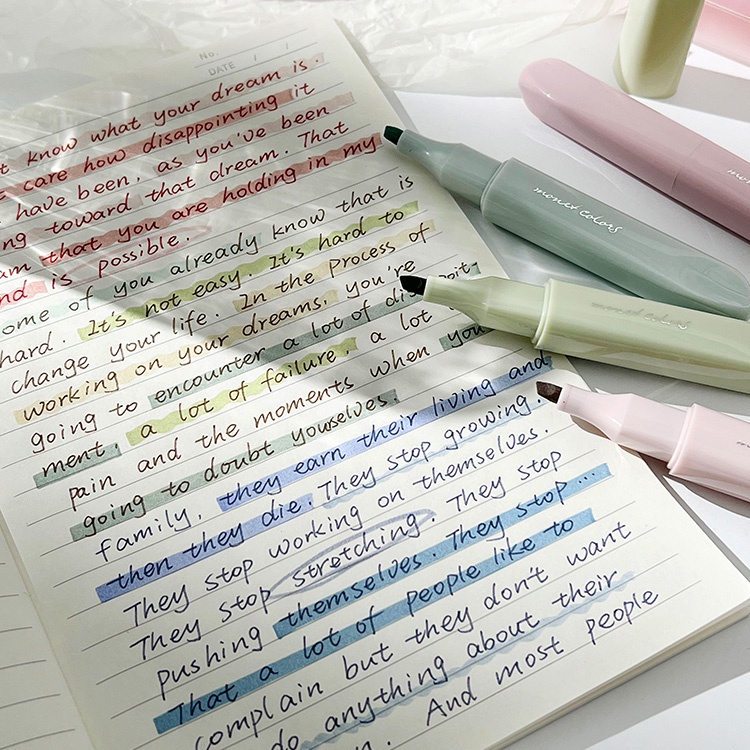 No.
DATE / /
know what your dream is.
care how disappointing it
have been, as you've been
toward that dream. That
that you are holding in my
is possible.
of you already know that is
hard. It's not easy. It's hard to
change your life. In the process of
working on your dreams, you're
going to encounter a lot of
ment, a lot of failure, a lot
pain and the moments when
going to doubt youselves.
family, they earn their living and
then they die. They stop growing.
They stop working on themselves.
They stop stretching. They stop
pushing themselves. They stop...
That a lot of people like to
complain but they don't want
do anything about their
And most people
monet colors
monet colors